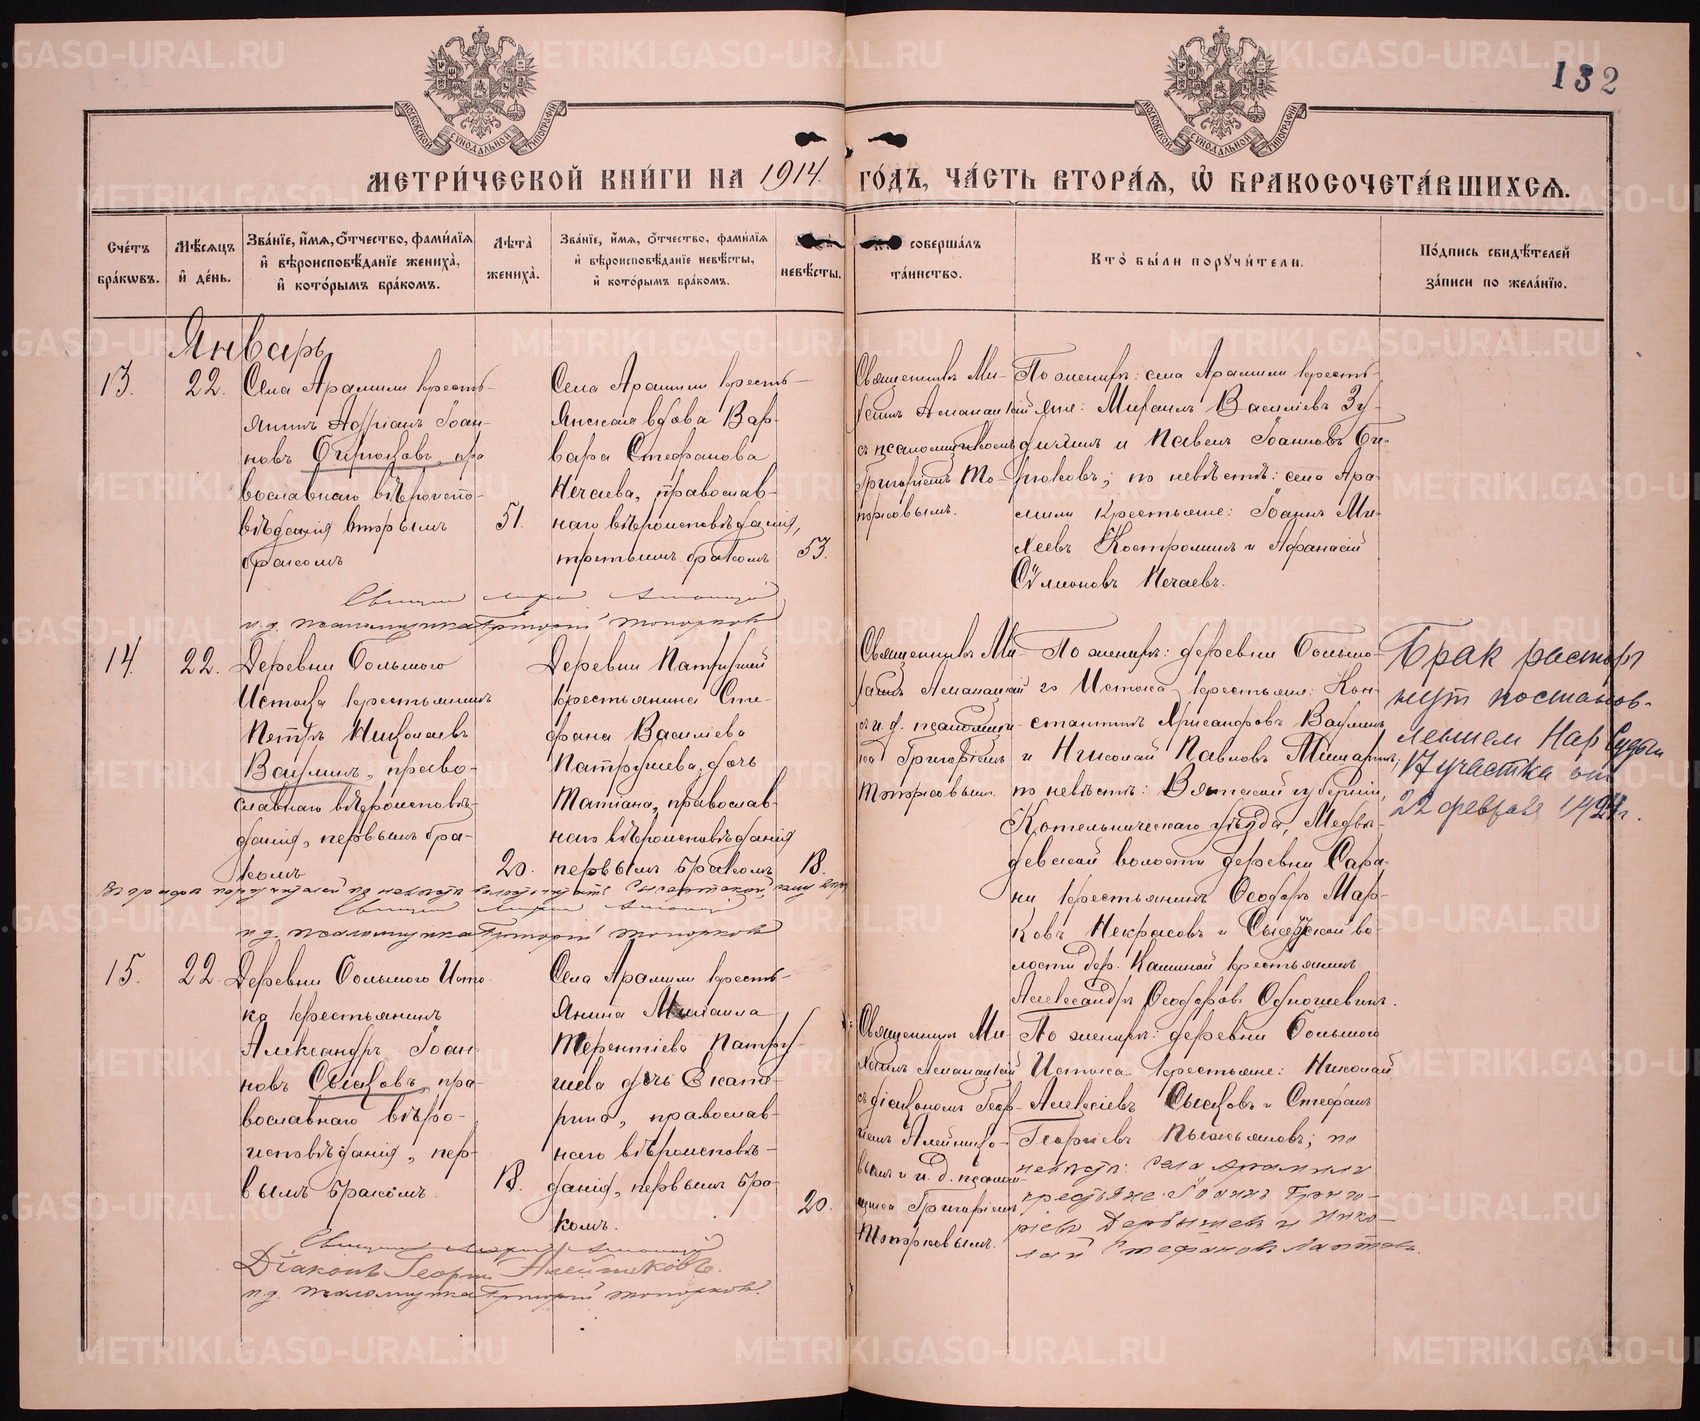 132
МЕТРИ́ЧЕСКОЙ КНИ́ГИ НА 1914 ГО́ДЪ, ЧА́СТЬ ВТОРА́Я, Ѡ БРАКОСОЧЕТА́ВШИХСЯ.
Сче́тъ бра́кѡвъ.
Мѣ́сяцъ и҆ де́нь.
Зва́нїе, и҆́мя, ѻ҆́тчество, фами́лїя и҆ вѣроисповѣ́данїе жениха̀, и҆ кото́рымъ бра́комъ.
Лѣта̀ жениха̀.
Зва́нїе, и҆́мя, ѻ҆́тчество, фами́лїя и҆ вѣроисповѣ́данїе невѣ́сты, и҆ кото́рымъ бра́комъ.
невѣ́сты.
соверша́лъ та́инство.
Кто̀ бы́ли порꙋчи́тели.
По́дпись свидѣ́телей за́писи по жела́нїю.
Январь
13.
22.
Села Арамили кресть-
янинъ Адріанъ Іоан-
новъ Бирюковъ, пра
вославнаго вѣроиспо-
вѣданія вторымъ
бракомъ
51.
Села Арамили кресть-
янская вдова Вар-
вара Стефанова
Нечаева, православ-
наго вѣроисповѣданія,
третьимъ бракомъ
53.
Священникъ Ми-
хаилъ
съ псаломщикомъ
Григоріемъ То-
порковымъ.
По женихѣ: села Арамили кресть-
яне: Михаилъ Василіевъ Зу-
и Павелъ Іоанновъ Би-
рюковъ; по невѣстѣ: села Ара-
мили крестьяне: Іоаннъ Ми-
хеевъ Костроминъ и Афанасій
Симеоновъ Нечаевъ.
и. д. псаломщика Григорій Топорковъ
14.
22.
Деревни Большого
Истока крестьянинъ
Петръ Николаевъ
Ваулинъ, право-
славнаго вѣроисповѣ-
данія, первымъ бра-
комъ
20.
Деревни Патрушей
крестьянина Сте-
фана Василіева
Патрушева дочь
Татіана, православ-
наго вѣроисповѣданія
первымъ бракомъ
18.
Священникъ Ми-
хаилъ
и. д. псаломщи-
ка Григоріемъ
Топорковымъ.
По женихѣ: деревни Большо-
го Истока крестьяне: Кон-
стантинъ Ваулинъ
и Николай Павловъ
по невѣстѣ: Вятской губерніи,
Котельническаго уѣзда, Медвѣ-
девской волости деревни Сара-
ни крестьянинъ Ѳеодоръ Мар-
ковъ Некрасовъ и Сысертской во-
лости дер. Кашиной крестьянинъ
Александръ Ѳеодоровъ
Брак расторг
нут постанов-
лением Нар Суда
17 участка от
22 февраля
и. д. псаломщика Григорій Топорковъ
15.
22.
Деревни Большого Исто-
ка крестьянинъ
Александръ Іоан-
новъ Сысковъ, пра-
вославнаго вѣро-
исповѣданія, пер-
вымъ бракомъ.
18.
Села Арамили кресть-
янина Михаила
Терентіева Патру-
шева дочь Екате-
рина, православ-
наго вѣроисповѣ-
данія, первымъ бра-
комъ.
20.
Священникъ Ми-
хаилъ
съ діакономъ Геор-
гіемъ Алейнико-
вымъ и и. д. псалом-
щика Григоріемъ
Топорковымъ.
По женихѣ: деревни Большого
Истока крестьяне: Николай
Алексіевъ Сысковъ и Стефанъ
Георгіевъ Пьянковъ; по
невѣстѣ: села Арамили
крестьяне: Іоаннъ Григо-
ріевъ и Нико-
лай Стефановъ Лаптевъ.
Діаконъ Георгій Алейниковъ.
и. д. псаломщика Григорій Топорковъ.